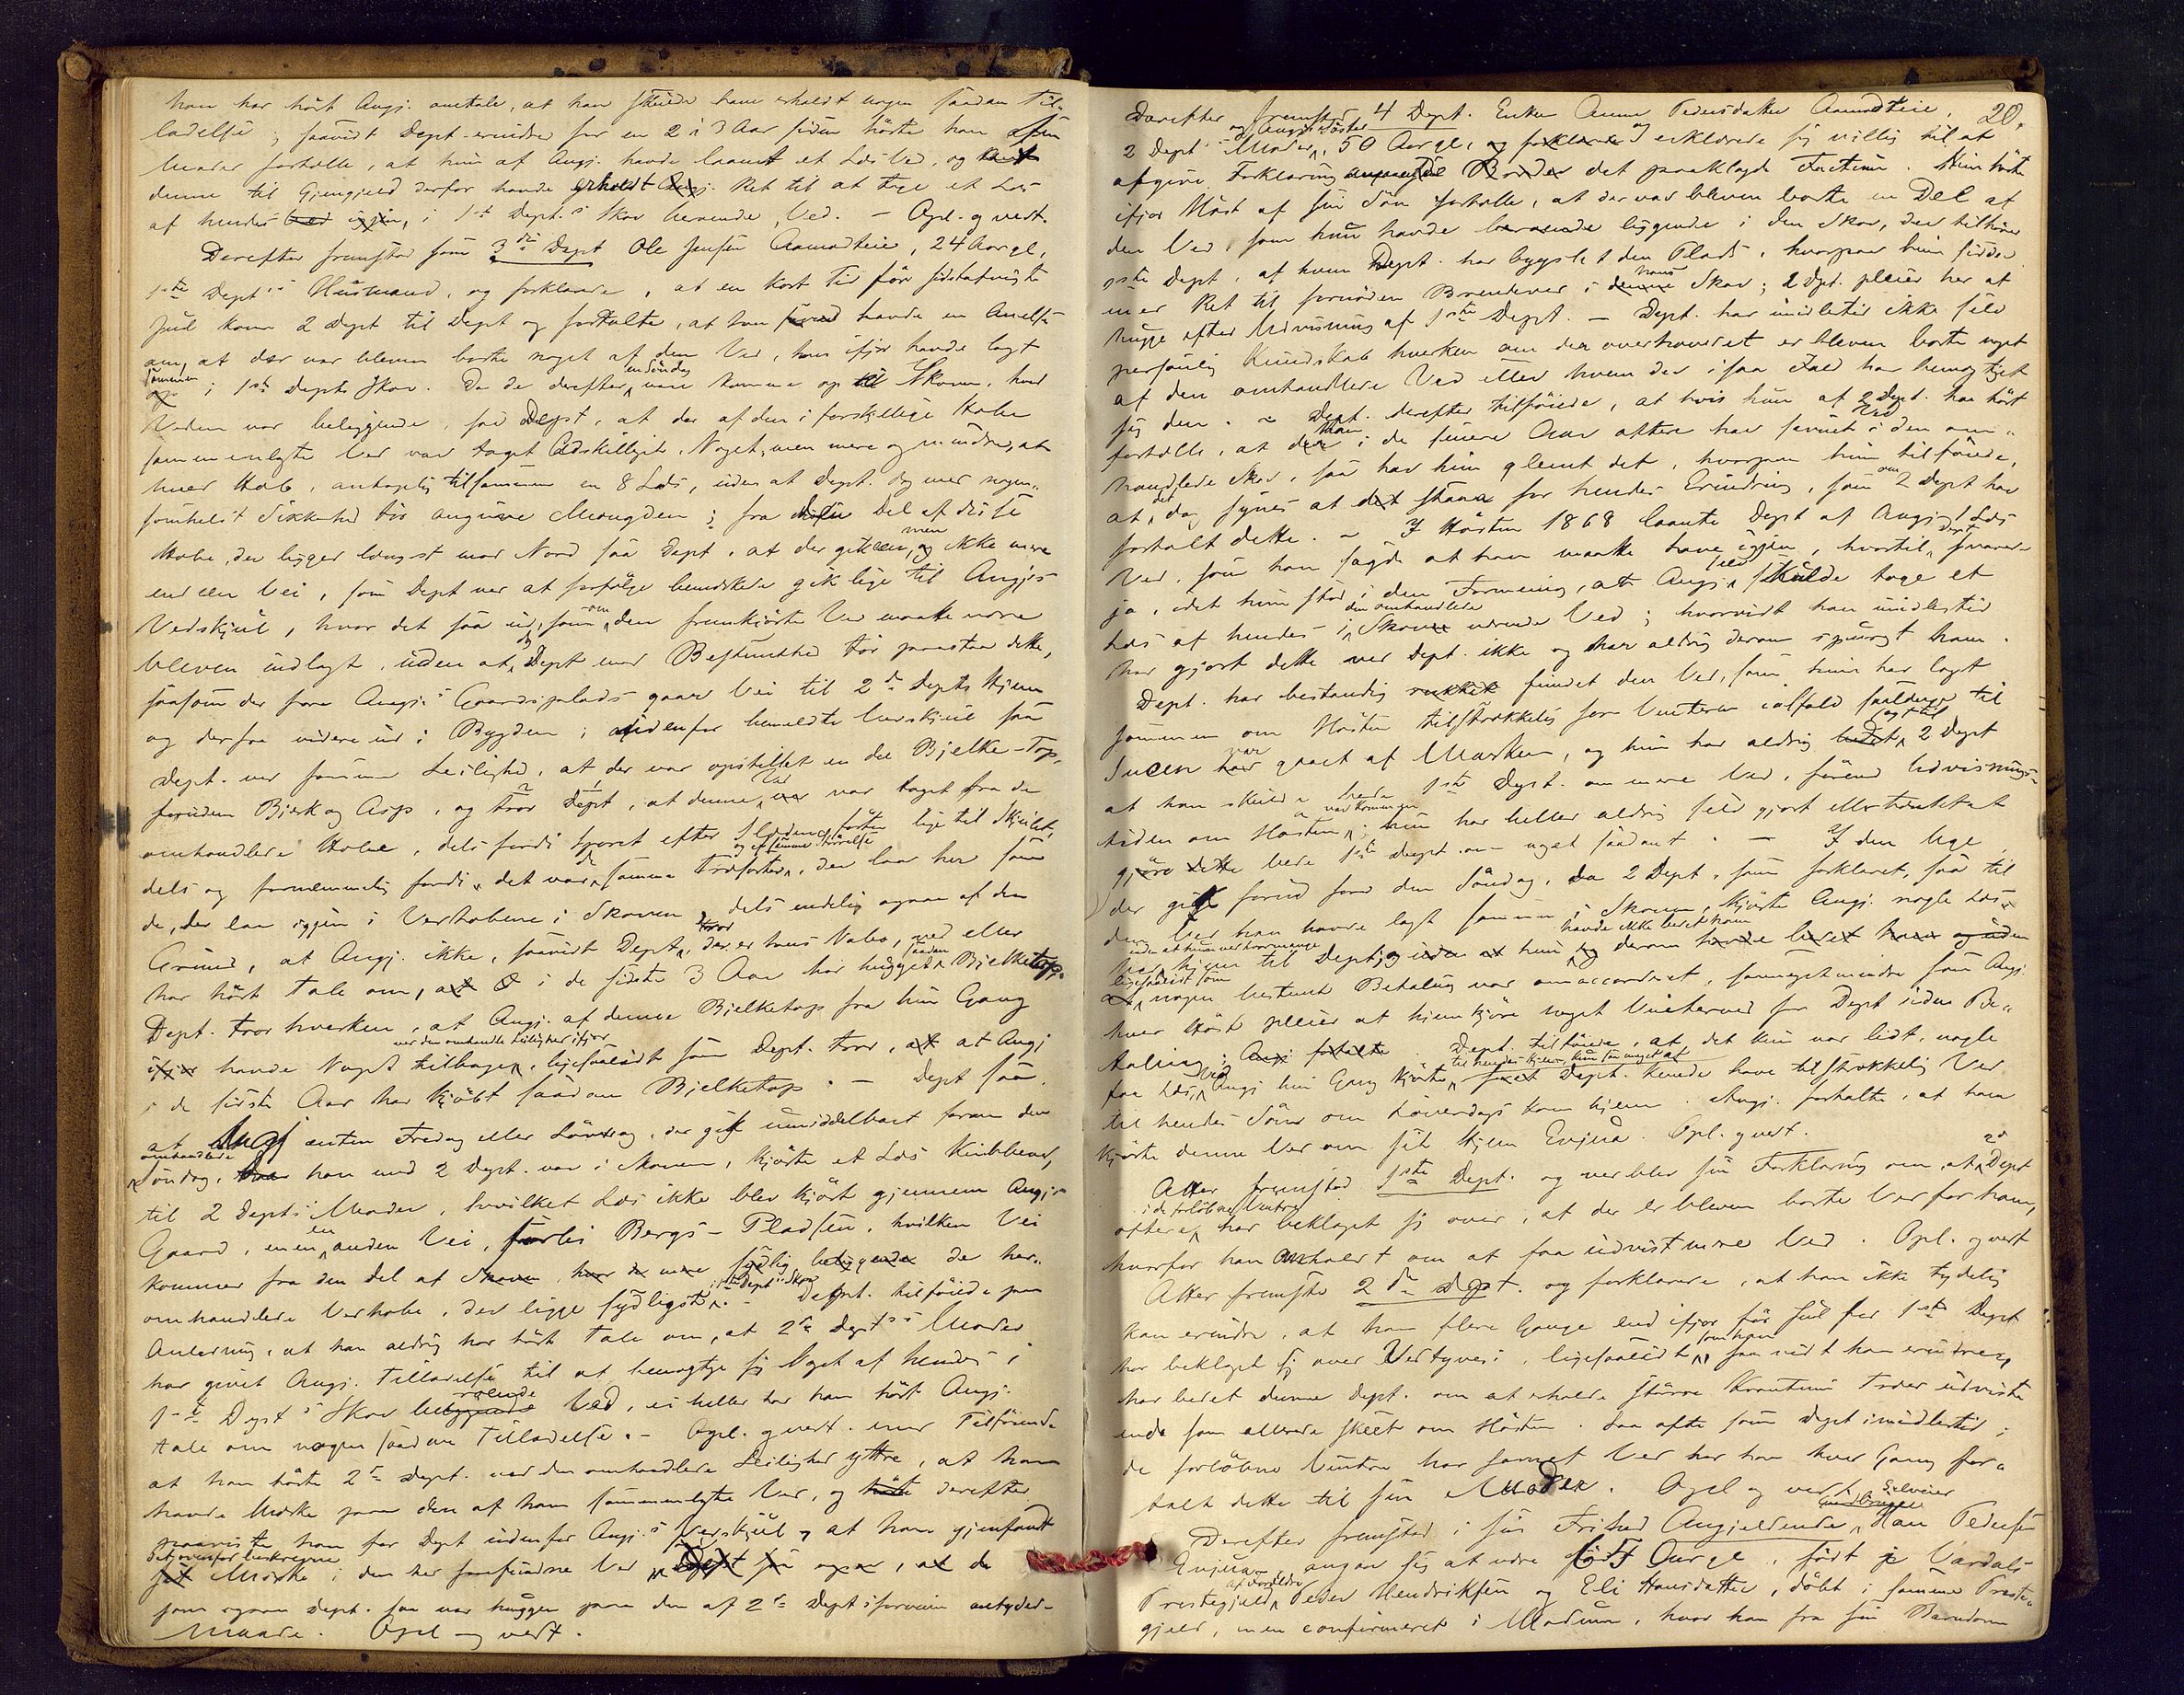 han har hört Angj. omtale, at han skulde have erholdt nogen saadan Til-
ladelse; saavidt Dept. erindrer for en 2 à 3 Aar siden hörte han sin
Moder fortælle, at hun af Angj. havde laant et Læs Ved, og at
denne til Gjengjeld derfor havde erholdt Ret til at tage et Læs
af hendes i 1ste Dept.s Skov værende Ved. – Opl. og vedt.
Derefter fremstod som 3die Dept Ole Jensen Aamodteie, 24 Aar gl.,
1ste Dept's Husmand, og forklarede, at en kort Tid før sidstafvigte
Jul kom 2 Dept til Dept og fortalte, at han havde en Anelse
om, at der var bleven borte noget af den Ved, han ifjor havde lagt
sammen i 1ste Depts Skov. Da de derefter en Söndag vare komne op til Skoven, hvor
Veden var beliggende, saa Dept, at der af den i forskjellige Hobe
sammenlagte Ved var taget Adskilligt, Noget, men mere og mindre, af
hver Hob, antagelig tilsammen en 8 Læs, uden at Dept. dog med nogen-
somhelst Sikkerhed tör angive Mængden; fra den Del af disse
Hobe, der ligger længst mod Nord saa Dept, at der gik en, men ikke mere
end een Vei, som Dept ved at forfölge bemærkede gik lige til Angj.s
Vedskjul, hvor det saa ud, som om den fremkjörte Ved maatte være
bleven indlagt, uden at dog Dept med Bestemthed tör paastaa dette,
saasom der fra Angj.s Gaardsplads gaar Vei til 2den Depts Hjem
og derfra videre ud i Bygden; udenfor bemeldte Vedskjul saa
Dept. ved samme Leilighed, at der var opstillet en del Bjelke-Top,
foruden Birk og Asp, og tror Dept, at denne Ved var taget fra de
omhandlede Hobe, dels fordi Sporet efter Slæden förte lige til Skjulet,
dels og fornemmelig fordi det var de samme Træsorter og af samme Störrelse, der laa her som
de, der laa igjen i Vedhobene i Skoven, dels endelig ogsaa af den
Grund, at Angj. ikke, saavidt Dept tror, der er hans Nabo, ved eller
har hört tale om, i de sidste 3 Aar har hugget saadan Bjelketop.
Dept. tror hverken, at Angj. af denne Bjelketop fra hin Gang
havde Noget tilbage ved den omhandlede Leilighed ifjor, ligesaalidt som Dept. tror, at Angj
i de sidste Aar har kjöbt saadan Bjelketop. – Dept saa,
at Angj enten Fredag eller Löverdag, der gik umiddelbart foran den
omhandlede Söndag, han med 2 Dept. var i Skoven, kjörte et Læs Kubbeved,
til 2 Depts Moder, hvilket Læs ikke blev kjört gjennem Angj.s
Gaard, men en anden Vei, forbi Bergs-Pladsen, hvilken Vei
kommer fra den Del af de her-
omhandlede Vedhobe, der ligge sydligst i 1ste Dept's Skov. – Dept. tilföiede paa
Anledning, at han aldrig har hört tale om, at 2den Dept's Moder
har givet Angj. Tilladelse til at bemægtige sig Noget af hendes i
1ste Dept's Skov værende Ved, ei heller har han hört Angj.
tale om nogen saadan Tilladelse. – Opl. og vedt. med Tilföiende
at han hörte 2den Dept. ved den omhandlede Leilighed yttre, at han
havde Mærke paa den af ham sammenlagte Ved, og derefter
paaviste han for Dept udenfor Angj.s Vedskjul, at han gjenfandt
det ovenfor beskrevne Mærke i den her forefundne Ved,
som ogsaa Dept. saa var hugget paa den af 2den Dept iforveien antydede
Maade. Opl og vedt.
20.
Derefter fremstod 4 Dept. Enken Anne Pedersdatter Aamodteie,
2 Dept's Moder og Angj.s Söster, 50 Aar gl., og erklærede sig villig til at
afgive Forklaring det paaklagede Factum. Hun hörte
ifjor Höst af sin Sön fortælle, at der var bleven borte en Del af
den Ved, som hun havde liggende i den Skov, der tilhörer
1ste Dept, af hvem Dept. har bygslet den Plads, hvorpaa hun sidder
med Ret til fornöden Brændeved i hans Skov; 2 Dpt. pleier her at
hugge efter Udvisning af 1ste Dept. – Dept. har imidlertid ikke selv
personlig Kundskab hverken om der overhovedet er bleven borte noget
af den omhandlede Ved eller hvem der i saa Fald har bemægtiget
sig den. – Dept. derefter tilföiede, at hvis hun af 2 Dept. har hört
fortælle, at han i de senere Aar oftere har savnet Ved i den om-
handlede Skov, saa har hun glemt det, hvorpaa hun tilföiede,
at det dog synes at staa for hendes Erindring, som om 2 Dept har
fortalt dette. – I Hösten 1868 laante Dept af Angj. 1 Læs
Ved, som han sagde at han maatte have igjen, hvortil Dept svarede
ja, idet hun stod i den Formening, at Angj. selv skulde tage et
Læs af hendes i den omhandlede Skov værende Ved; hvorvidt han imidlertid
har gjort dette ved Dept. ikke og har aldrig derom spurgt ham.
Dept. har bestandig fundet den Ved, som hun har lagt
sammen om Hösten tilstrækkelig for Vinteren ialfald saalænge til
Sneen var gaaet af Marken, og hun har aldrig sagt til 2 Dept
at han skulde bede 1ste Dept. om mere Ved, förend Udvisnings-
tiden om Hösten var kommen; hun har heller aldrig selv gjort eller
bede 1ste Dept. om noget saadant. – I den Uge,
der gik forud for den Söndag, da 2 Dept, som forklaret, saa til
den Ved han havde lagt sammen i Skoven, kjörte Angj. nogle Læs
Ved hjem til Dept, uden at hun ved hvormange, og hun havde ikke bedet ham derom
ligesaalidt som nogen bestemt Betaling var omaccorderet, saameget mindre som Angj.
hver Höst pleier at hjemkjöre noget Vinterved for Dept uden Be-
taling. Dept. tilföiede, at det kun var lidt, nogle
faa Læs, Ved Angj hin Gang kjörte til hendes Hjem, kun saa meget at Dept. kunde have tilstrækkelig Ved
til hendes Sön om Löverdags kom hjem. Angj. fortalte, at han
kjörte denne Ved om sit Hjem Enjua. Opl. og vedt.
Atter fremstod 1ste Dept. og vedblev sin Forklaring om, at 2de Dept
oftere i de forlöbne Vintre har beklaget sig over, at der er bleven borte Ved for ham,
hvorfor han anholdt om at faa udvist mere Ved. Opl. og vedt
Atter fremstod 2den Dept. og forklarede, at han ikke tydelig
kan erindre, at han flere Gange end ifjor för Jul for 1ste Dept
har beklaget sig over Vedtyveri, ligesaalidt som han saavidt han erindrer,
har bedet denne Dept. om at erholde större Kvantum Træer udviste
end som allerede skeet om Hösten. Saa ofte som Dept imidlertid i
de forlöbne Vintre har savnet Ved har han hver Gang for-
talt dette til sin Moder. Opl og vedt
Derefter fremstod i sin Frihed Angjeldende, Selveier Hans Pedersen
Enjua, angav sig at være Aar gl., födt i Vardals
Prestegjeld af Forældre Peder Hendriksen og Eli Hansdatter, döbt i samme Preste-
gjeld, men confirmeret i Modum, hvor han fra sin Barndom